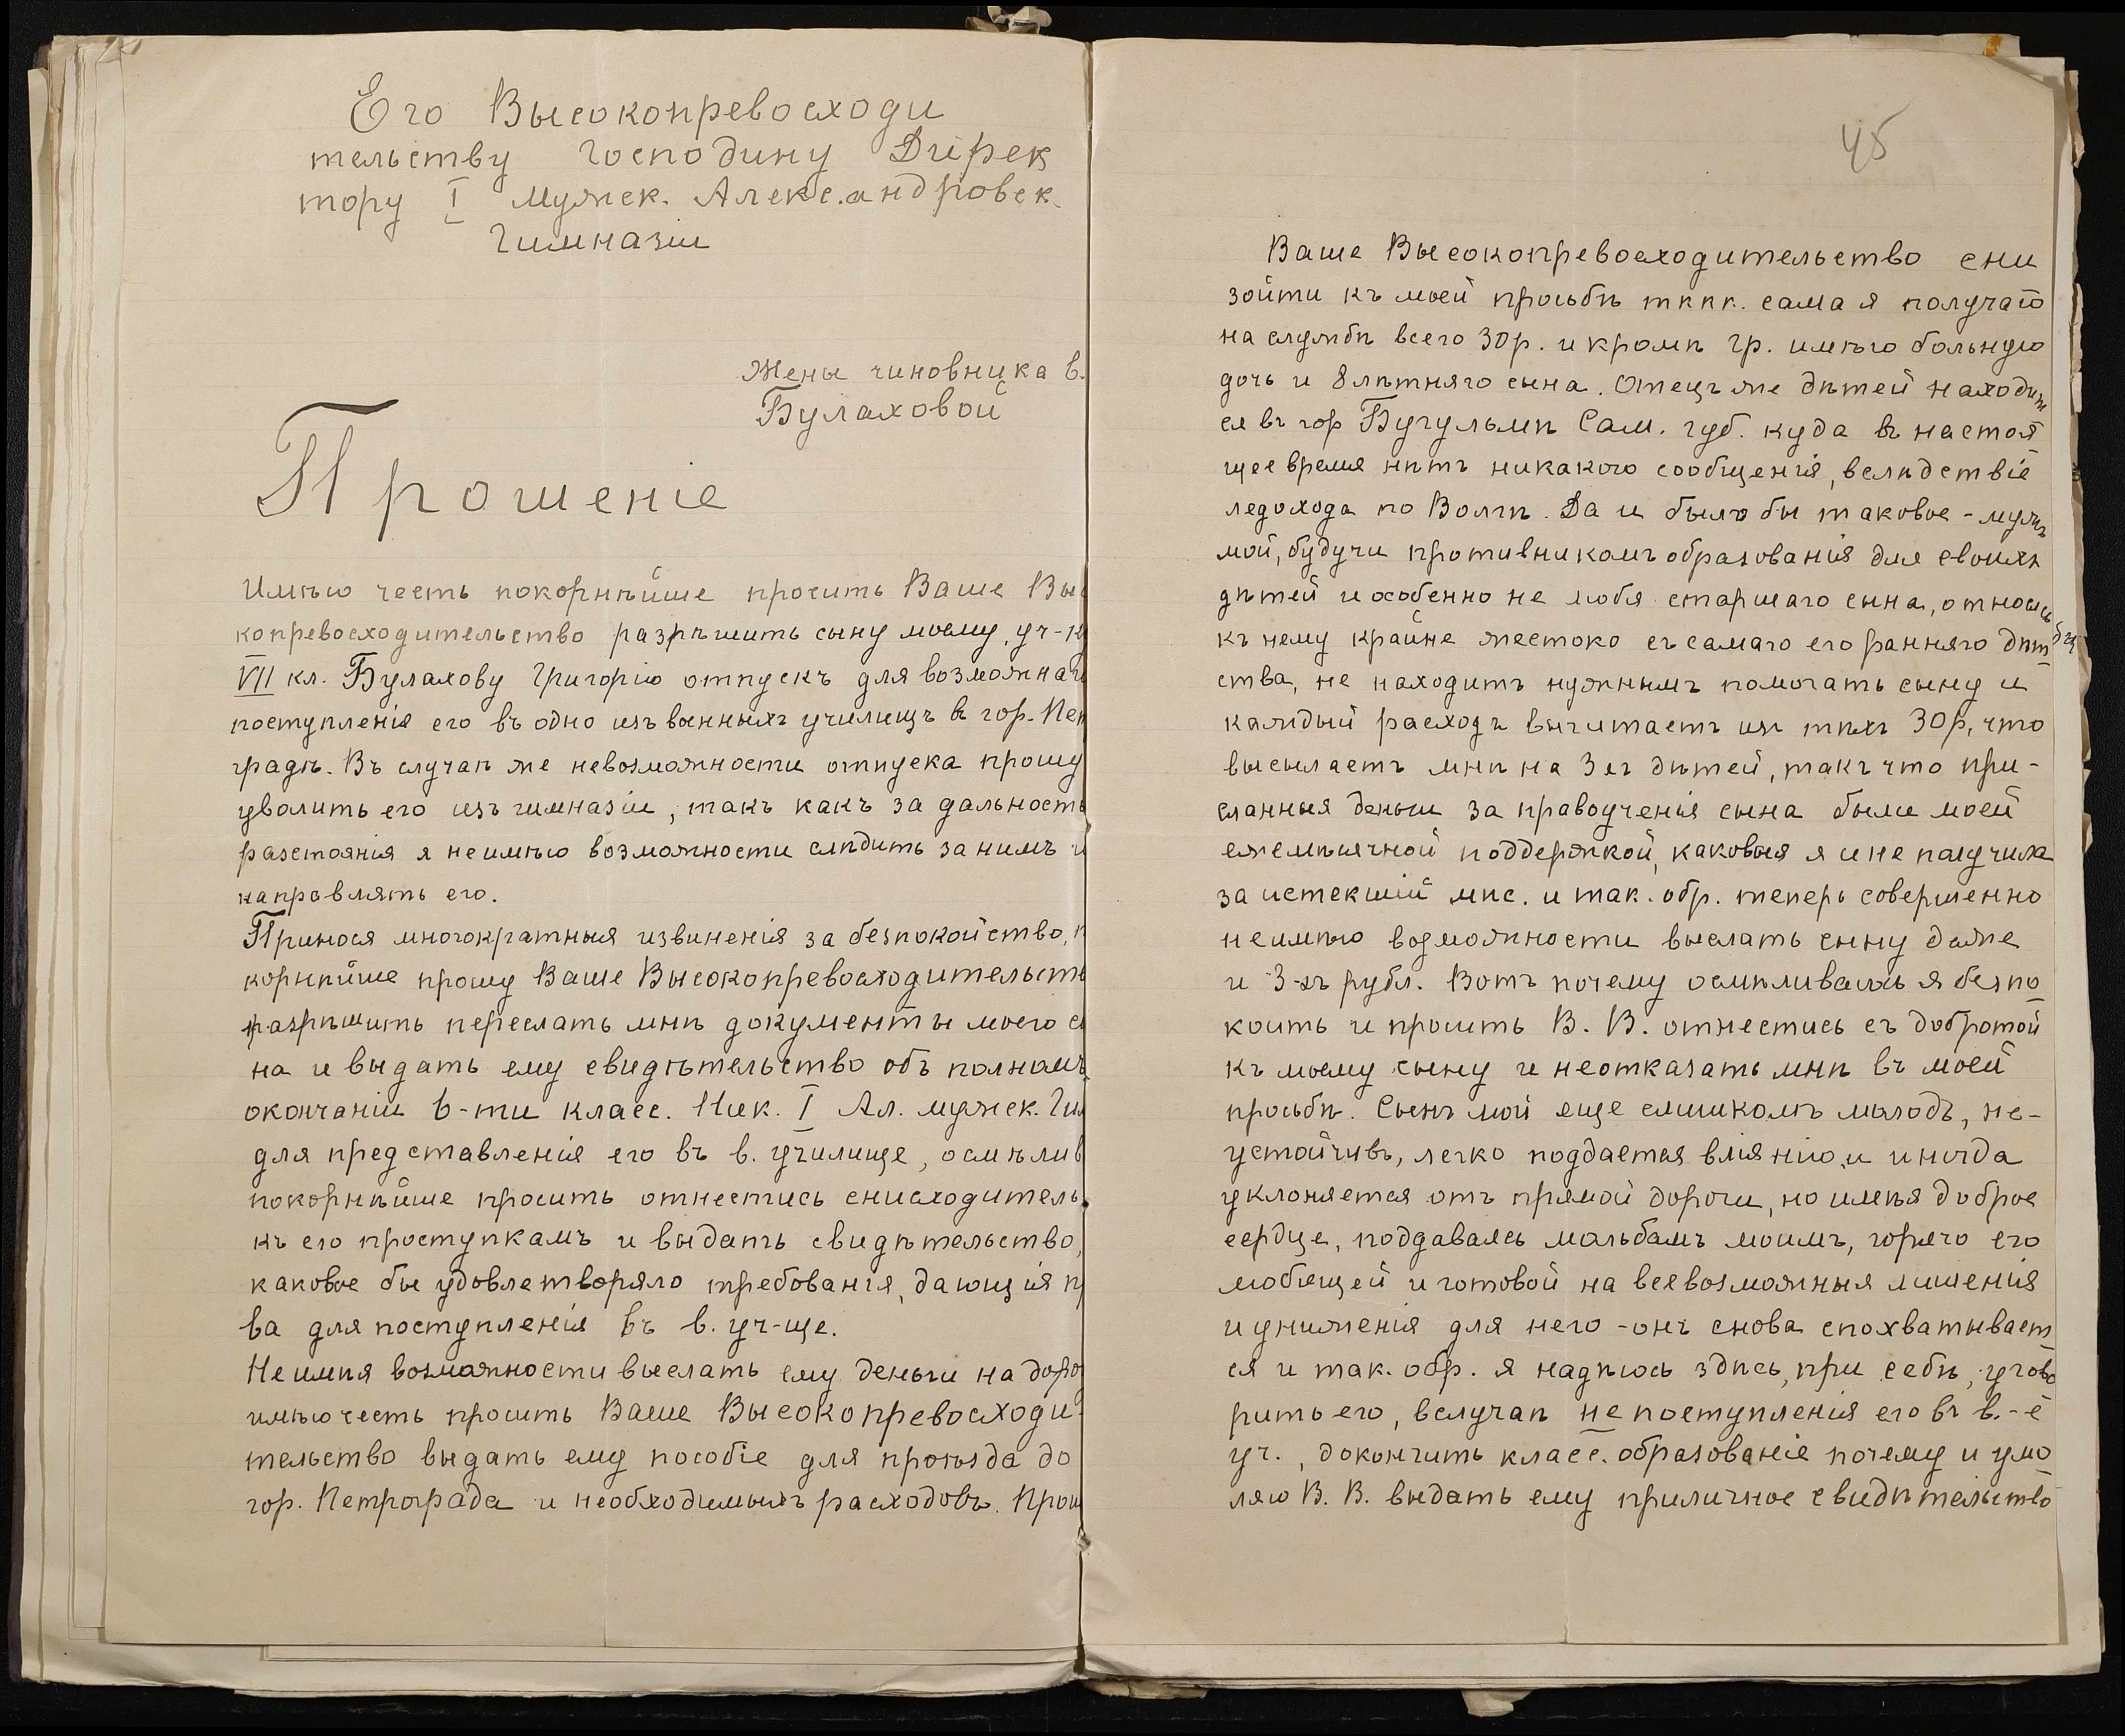 Его Высокопревосходи
тельству Господину Дирек
тору I мужск. Александровск.
Гимназіи
Жены чиновника В.
Булаховой
Прошеніе
Имѣю честь покорнѣйше просить Ваше Выс
копревосходительство разрѣшить сыну моему, уч-ку
VII кл. Булахову Григорію отпускъ для возможнаго
поступленія его въ одно изъ военныхъ училищъ в гор. Пет
градѣ. Въ случаѣ же невозможности отпуска прошу
уволить его изъ гимназіи, такъ какъ за дальность
разстоянія я не имѣю возможности слѣдить за нимъ и
направлять его.
Принося многократныя извиненія за безпокойство, п
корнѣйше прошу Ваше Высокопревосходительств
разрѣшить переслать мнѣ документы моего с
на и выдать ему свидѣтельство объ полномъ
окончаніи 6-ти класс. Ник. I Ал. мужск. Гим
для представленія его въ в. училище, осмѣлив
покорнѣйше просить отнестись снисходитель
къ его проступкамъ и выдать свидѣтельство,
каковое бы удовлетворяло требованія, дающія п
ва для поступленія въ в. уч-ще.
Не имѣя возможности выслать ему деньги на доро
имѣю честь просить Ваше Высокопревосходи-
тельство выдать ему пособіе для проѣзда до
гор. Петрограда и необходимыхъ расходовъ. Прош
45
Ваше Высокопревосходительство сни
зойти къ моей просьбѣ сама я получаю
на службѣ всего 30 р. и кромѣ Гр. имѣю больную
дочь и 8 лѣтняго сына. Отецъ же дѣтей находит
ся въ гор Бугульмѣ Сам. губ. куда въ настоя
щее время нѣтъ никакого сообщенія, вслѣдствіе
ледохода по Волгѣ. Да и было бы таковое - мужъ
мой, будучи противникомъ образованія для своихъ
дѣтей и особенно не любя старшаго сына, относясь
къ нему крайне жестоко съ самаго его ранняго дѣт
ства, не находитъ нужнымъ помогать сыну и
каждый расходъ вычитаетъ изъ тѣхъ 30 р, что
высылаетъ мнѣ на 3 хъ дѣтей, такъ что при-
сланныя деньги за правоученія сына были моей
ежемѣсячной поддержкой, каковыя я и не получила
за истекшій мѣс. и так. обр. теперь совершенно
не имѣю возможности выслать сыну даже
и 3-хъ рубл. Вотъ почему осмѣливаюсь я безпо
коить и просить В. В. отнестись съ добротой
къ моему сыну и неотказать мнѣ въ моей
просьбѣ. Сынъ мой еще слишкомъ молодъ, не-
устойчивъ, легко поддается вліянію, и иногда
уклоняется отъ прямой дороги, но имѣя доброе
сердце, поддаваясь мольбамъ моимъ, горячо его
любящей и готовой на всевозможныя лишенія
и униженія для него - онъ снова спохватывает
ся и так. обр. я надѣюсь здѣсь, при себѣ, угово
рить его, вслучаѣ не поступленія его въ в.-е
уч., докончить класс. образованіе почему и умо
ляю В. В. выдать ему приличное свидѣтельство